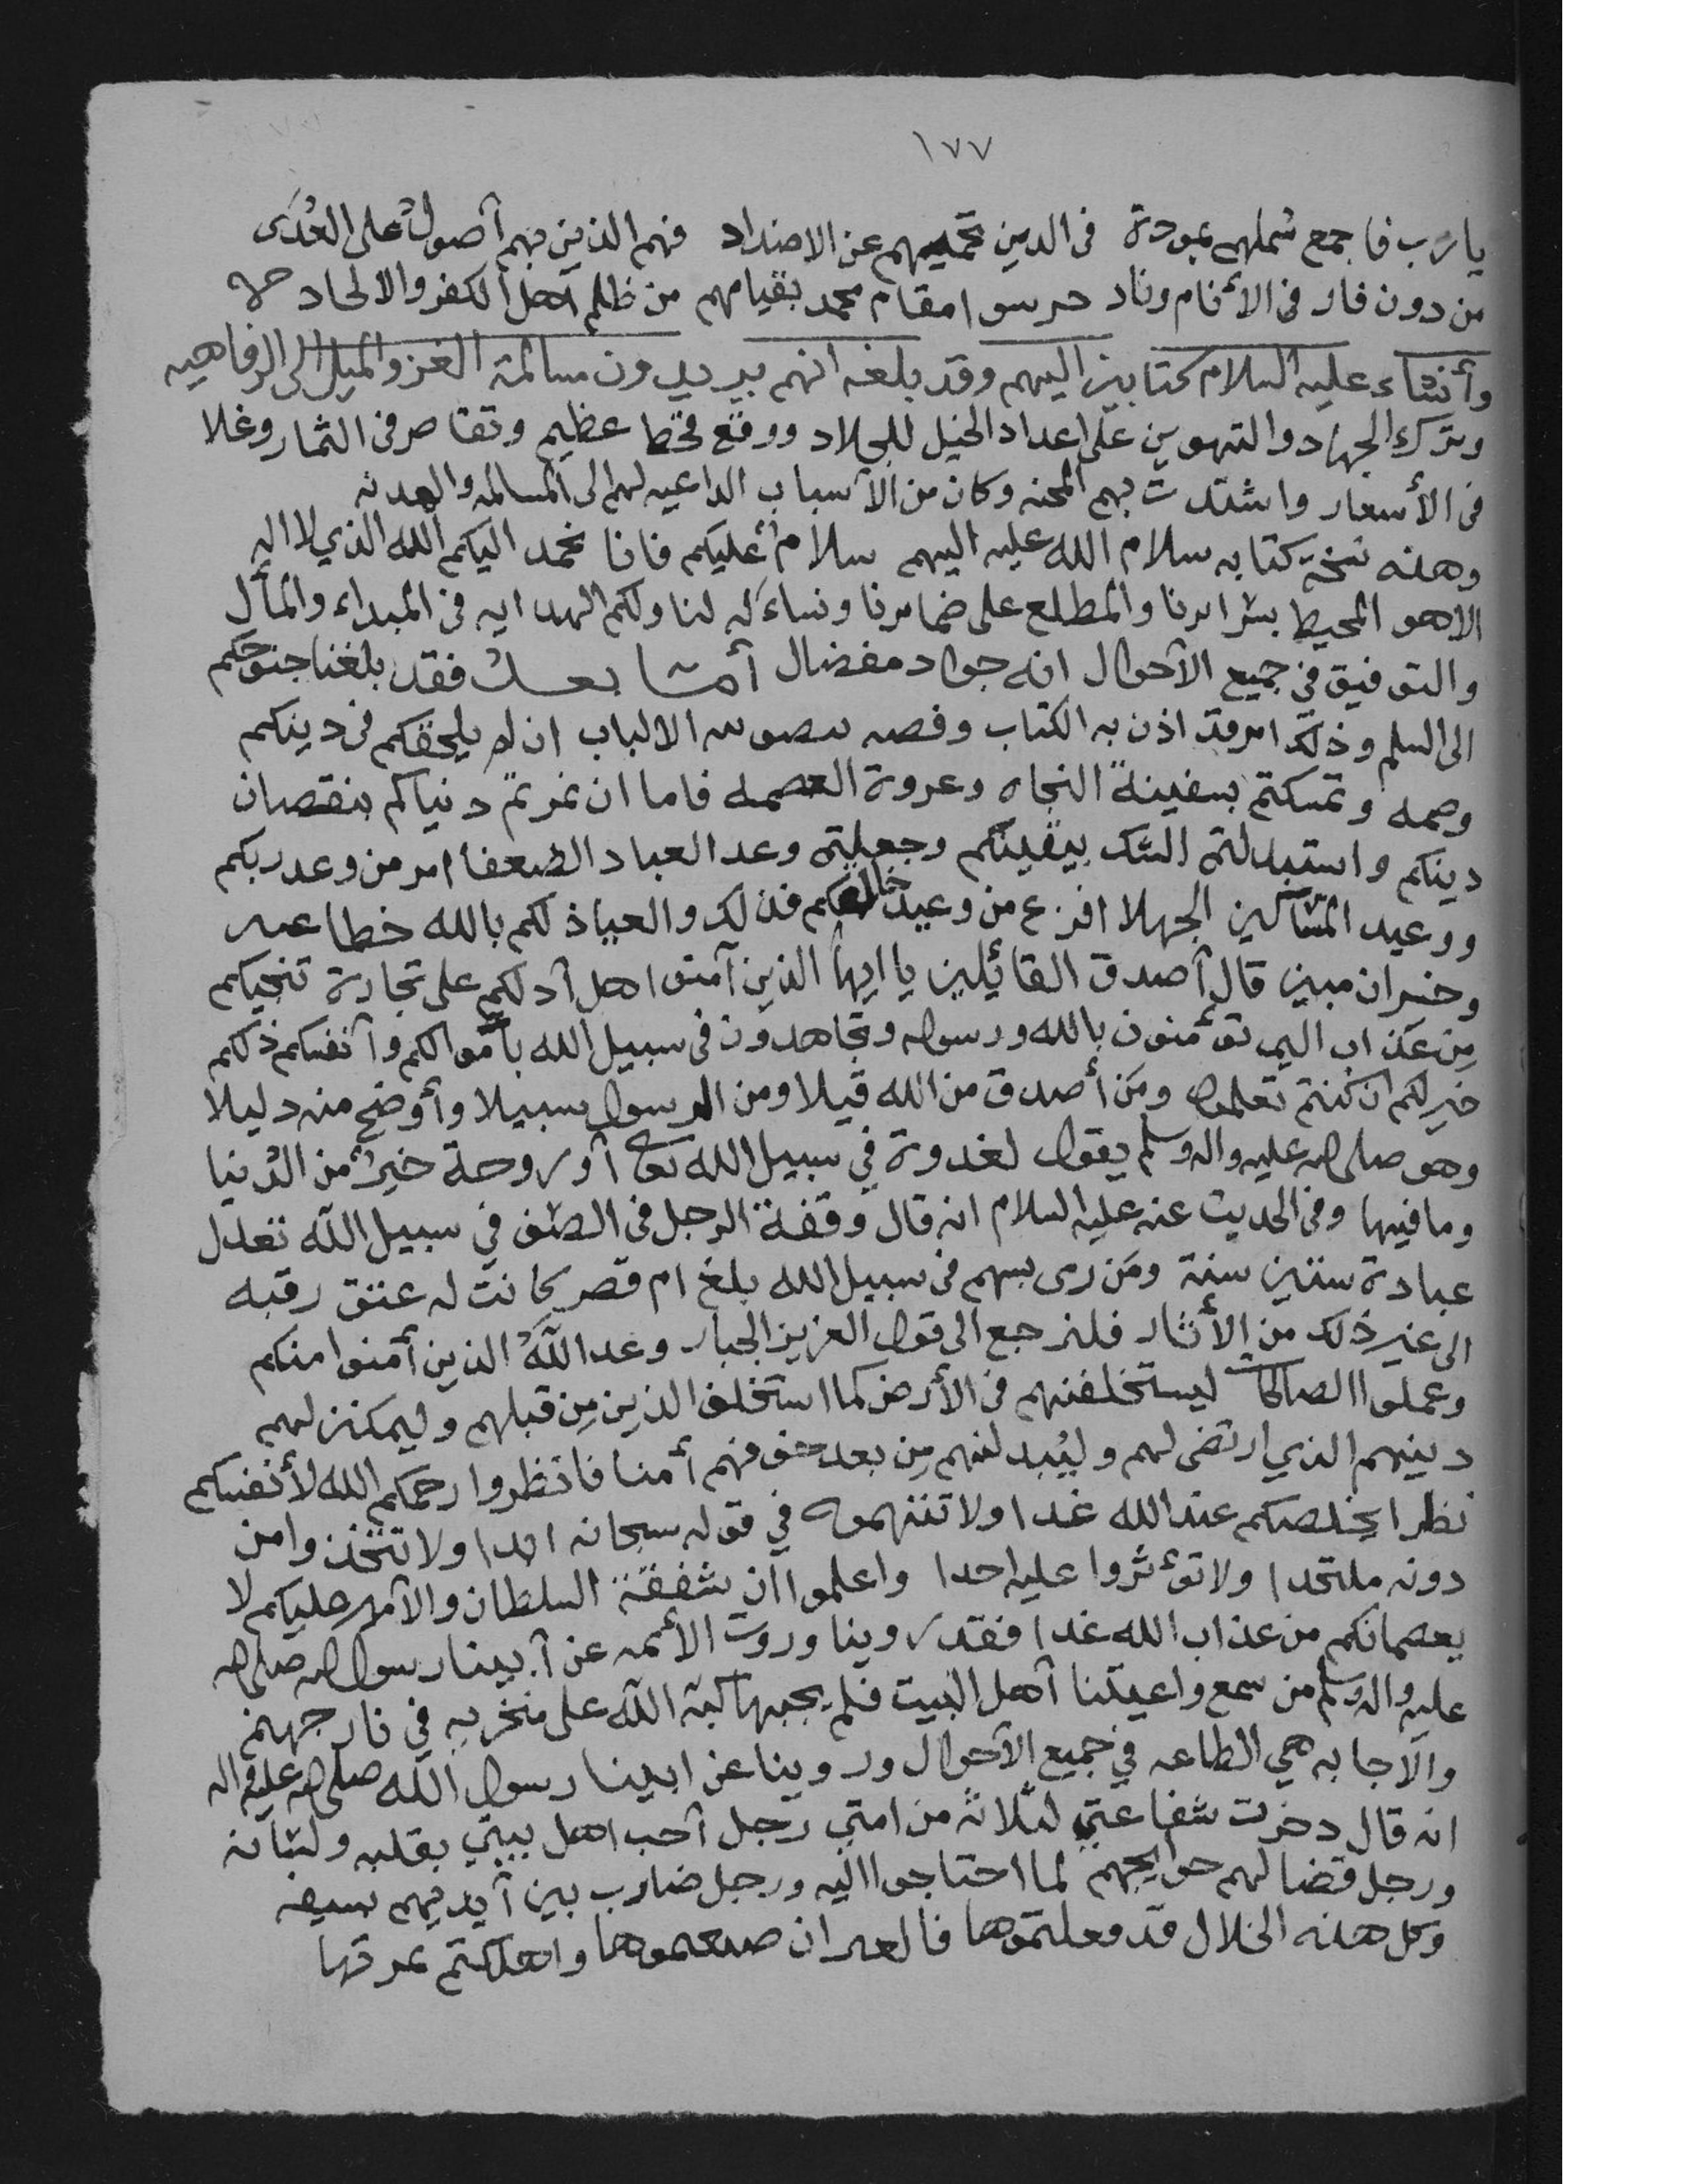 ١٧٧
يا رب فاجمع شملهم بمودة في الدين تحميهم عن الاضداد فهم الذين بهم أصول على العدى
من دون قار في الأنام وناد حرسوا مقام محمد بقيامهم من ظلم اهل الكفر والالحاد
وأنشاء عليه السلام كتابين اليهم وقد بلغه انهم يريدون مسالمة الغز والميل الى الرفاهيه
وترك الجهاد والتهوين على اعداد الخيل للجلاد ووقع قحط عظيم وتقاصر في الثمار وغلا
في الأسعار واشتدت بهم المحنه وكان من الأسباب الداعيه لهم الى المسالمه والهدنه
وهذه نسخة كتابه سلام الله عليه اليهم سلام عليكم فانا نحمد اليكم الله الذي لا اله
الا هو المحيط بسرايرنا والمطلع على ضمايرنا ونساءله لنا ولكم الهدايه في المبداء والمأل
والتوفيق في جميع الأحوال انه جواد مفضال أما بعد فقد بلغنا جنوحكم
الى السلم وذلك امر قد اذن به الكتاب وقصه الالباب ان لم يلحقكم في دينكم
وصمه وتمسكتم بسفينة النجاه وعروة العصمه فاما ان غرتم دنياكم بنقصان
دينكم واستبدلتم الشك بيقينكم وجعلتم وعد العباد الضعفا امر من وعد ربكم
ووعيد المتآلين الجهلا افزع من وعيد خالقكم فذلك والعياذ لكم بالله خطا
وخسران مبين قال أصدق القائيلين يا ايها الذين آمنوا هل أدلكم على تجارة تنجيكم
من عذاب اليم تؤمنون بالله ورسوله وتجاهدون في سبيل الله بأموالكم وأنفسكم ذلكم
خير لكم ان كنتم تعلمون ومن أصدق من الله قيلا ومن الرسول سبيلا وأوضح منه دليلا
وهو صلى الله عليه واله وسلم يقول لغدوة في سبيل الله تعا أو روحة خير من الدنيا
وما فيها وفي الحديث عنه عليه السلام انه قال وقفة الرجل في الصف في سبيل الله تعدل
عبادة ستين سنة ومن رمى بسهم في سبيل الله بلغ ام قصر كانت له عتق رقبه
الى غير ذلك من الأثار فلنرجع الى قول العزيز الجبار وعد الله الذين أمنوا منكم
وعملوا الصالحات ليستخلفنهم في الأرض كما استخلف الذين من قبلهم وليمكنن لهم
دينهم الذي ارتضى لهم وليبدلنهم من بعد خوفهم أمنا فانظروا رحمكم الله لأنفسكم
نظرا يخلصكم عند الله غدا ولا تتهموه في قوله سبحانه ابدا ولا تتخذوا من
دونه ملتحدا ولا تؤثروا عليه احدا واعلموا ان شفقة السلطان والأمير عليكم لا
يعصمانكم من عذاب الله غدا فقد روينا وروت الأئمه عن أبينا رسول الله صلى الله
عليه واله وسلم من سمع واعيتنا أهل البيت فلم يجبها كبه الله على منخريه في نار جهنم
والاجابه هي الطاعه في جميع الأحوال وروينا عن ابينا رسول الله صلى الله عليه واله
انه قال دخرت شفاعتي لثلاثه من امتي رجل أحب اهل بيتي بقلبه ولسانه
ورجل قضا لهم حوايجهم لما احتاجوا اليه ورجل ضارب بين أيديهم بسيفه
وكل هذه الخلال قد فعلتموها فالله ان ضيعتموها واهلكتم